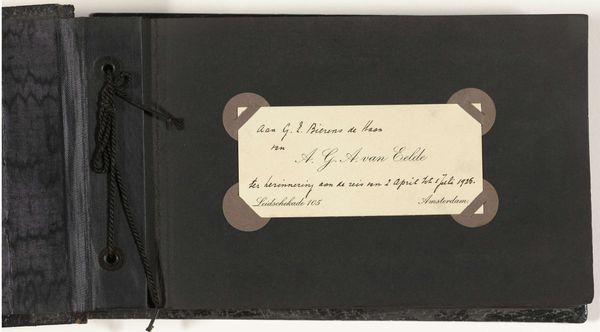 Aan G. L. Bierens de Haan
van
A. G. A. van Eelde
ter herinnering aan de reis van 2 April tot 1 Juli 1926.
Leidschekade 105 Amsterdam.